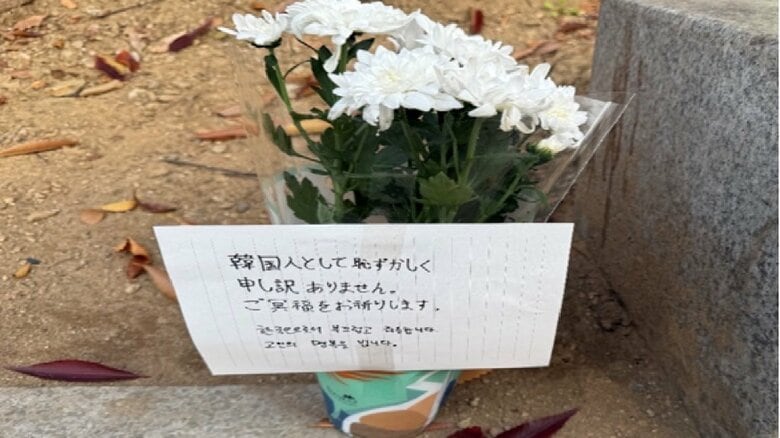 韓国人として恥ずかしく
申し訳ありません。
ご冥福をお祈りします。
한국인으로서 부끄럽고 죄송합니다
고인의 명복을 빕니다.